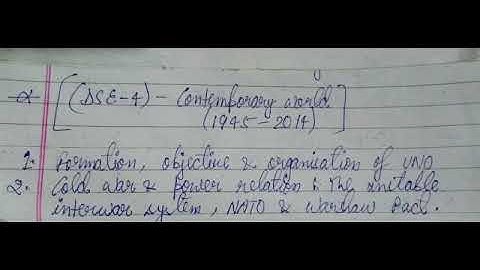 [(DSE-4) - Contemporary world
(1945-2014)]
1. Formation, objective & organisation of UNO
2. Cold war & power relation: The unstable
interwar system, NATO & Warsaw Pact.